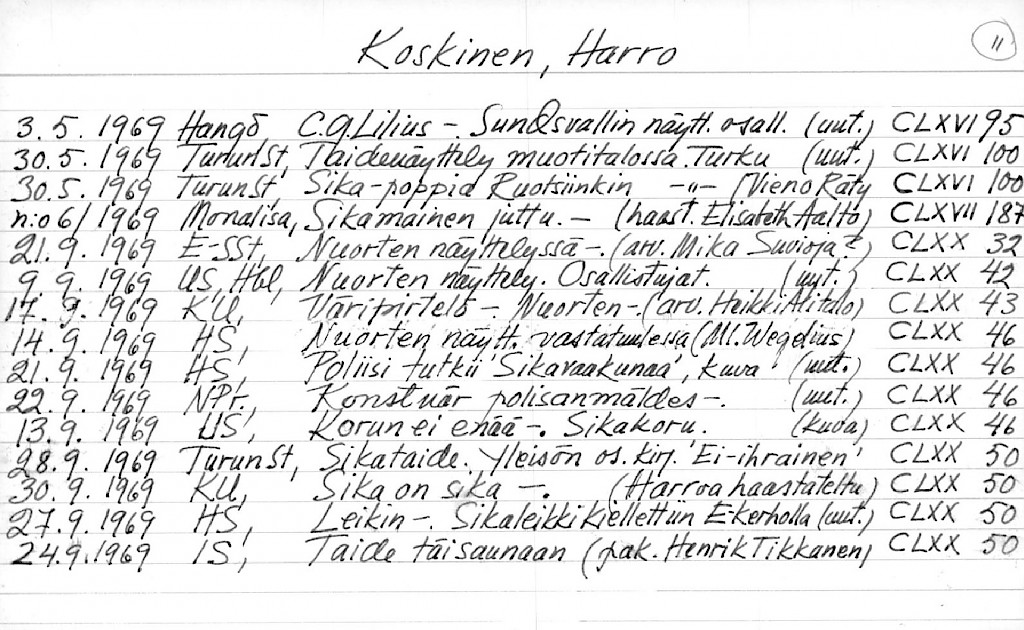 Koskinen, Harro
11
3.5.1969 Hangö, C.G.Lilius -. Sundsvallin näytt. osall. (uut.) CLXVI 95
30.5.1969 TurunSt, Taidenäyttely muotitalossa. Turku (uut.) CLXVI 100
30.5.1969 TurunSt, Sika-poppia Ruotsiinkin -"- (Vieno Räty CLXVI 100
n:o 6/1969 Monalisa, Sikamainen juttu. - (haast. Elisabeth Aalto) CLXVII 187
21.9.1969 E-SSt, Nuorten näyttelyssä -. (arv. Mika Suvioja?) CLXX 32
9.9.1969 US, Hbl, Nuorten näyttely. Osallistujat. (uut.) CLXX 42
17.9.1969 KU, Väripirtelö -. Nuorten -. (arv. Heikki Alitalo) CLXX 43
14.9.1969 HS, Nuorten näytt. vastatuulessa (Ml. Wegelius) CLXX 46
21.9.1969 HS, Poliisi tutkii 'Sikavaakunaa', kuva (uut.) CLXX 46
22.9.1969 NPr., Konstnär polisanmäldes -. (uut.) CLXX 46
13.9.1969 US, Korun ei enää -. Sikakoru. (kuva) CLXX 46
28.9.1969 TurunSt, Sikataide. Yleisön os. kirj. 'Ei-ihrainen' CLXX 50
30.9.1969 KU, Sika on sika -. (Harroa haastateltu) CLXX 50
27.9.1969 HS, Leikin -. Sikaleikki kiellettiin E-kerholla (uut.) CLXX 50
24.9.1969 IS, Taide täisaunaan (pak. Henrik Tikkanen) CLXX 50